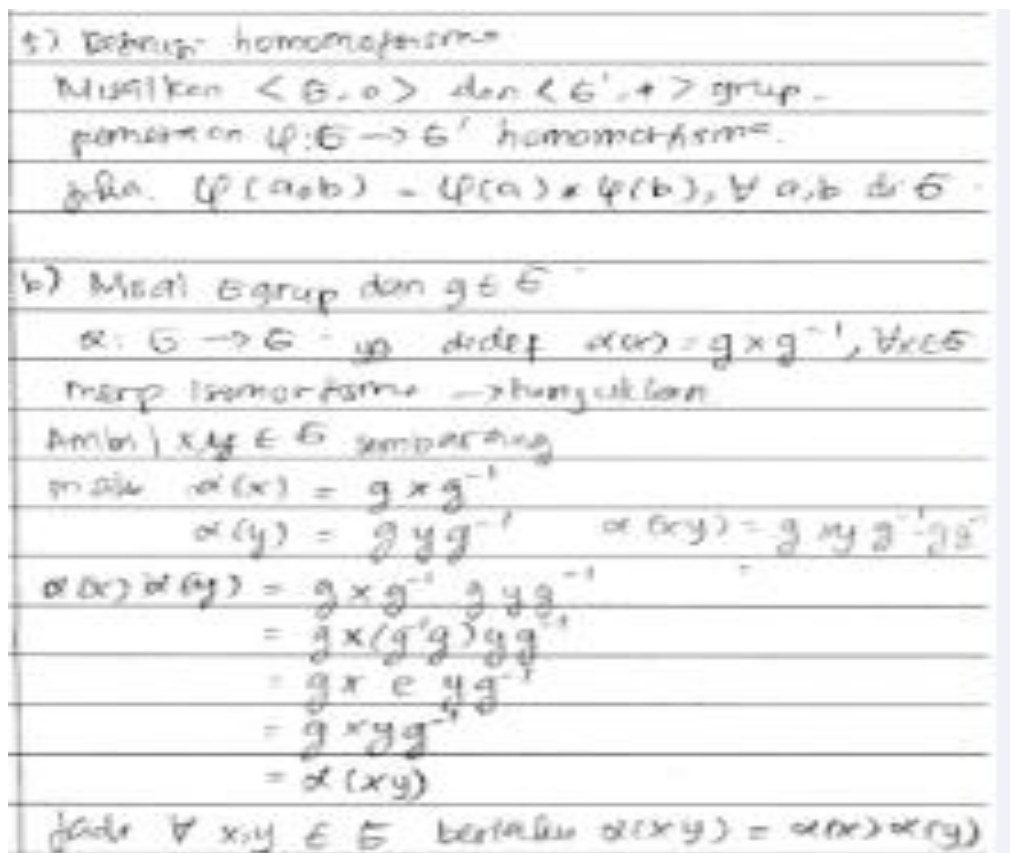 homomorfisma
Misalkan < G, o > dan < G', * > grup.
pemetaan φ: G → G' homomorfisma.
jika φ(aob) = φ(a) * φ(b), ∀ a,b di G
b) Misal G grup dan g ∈ G
α: G → G yg didef α(x) = g x g⁻¹, ∀x ∈ G
merp isomorfisma → tunjukkan
Ambil x,y ∈ G sembarang
mak α(x) = g x g⁻¹
α(y) = g y g⁻¹ α(xy) = g xy g⁻¹
α(x) α(y) = g x g⁻¹ g y g⁻¹
= g x (g⁻¹g) y g⁻¹
= g x e y g⁻¹
= g x y g⁻¹
= α(xy)
jadi ∀ x,y ∈ G berlaku α(xy) = α(x) α(y)